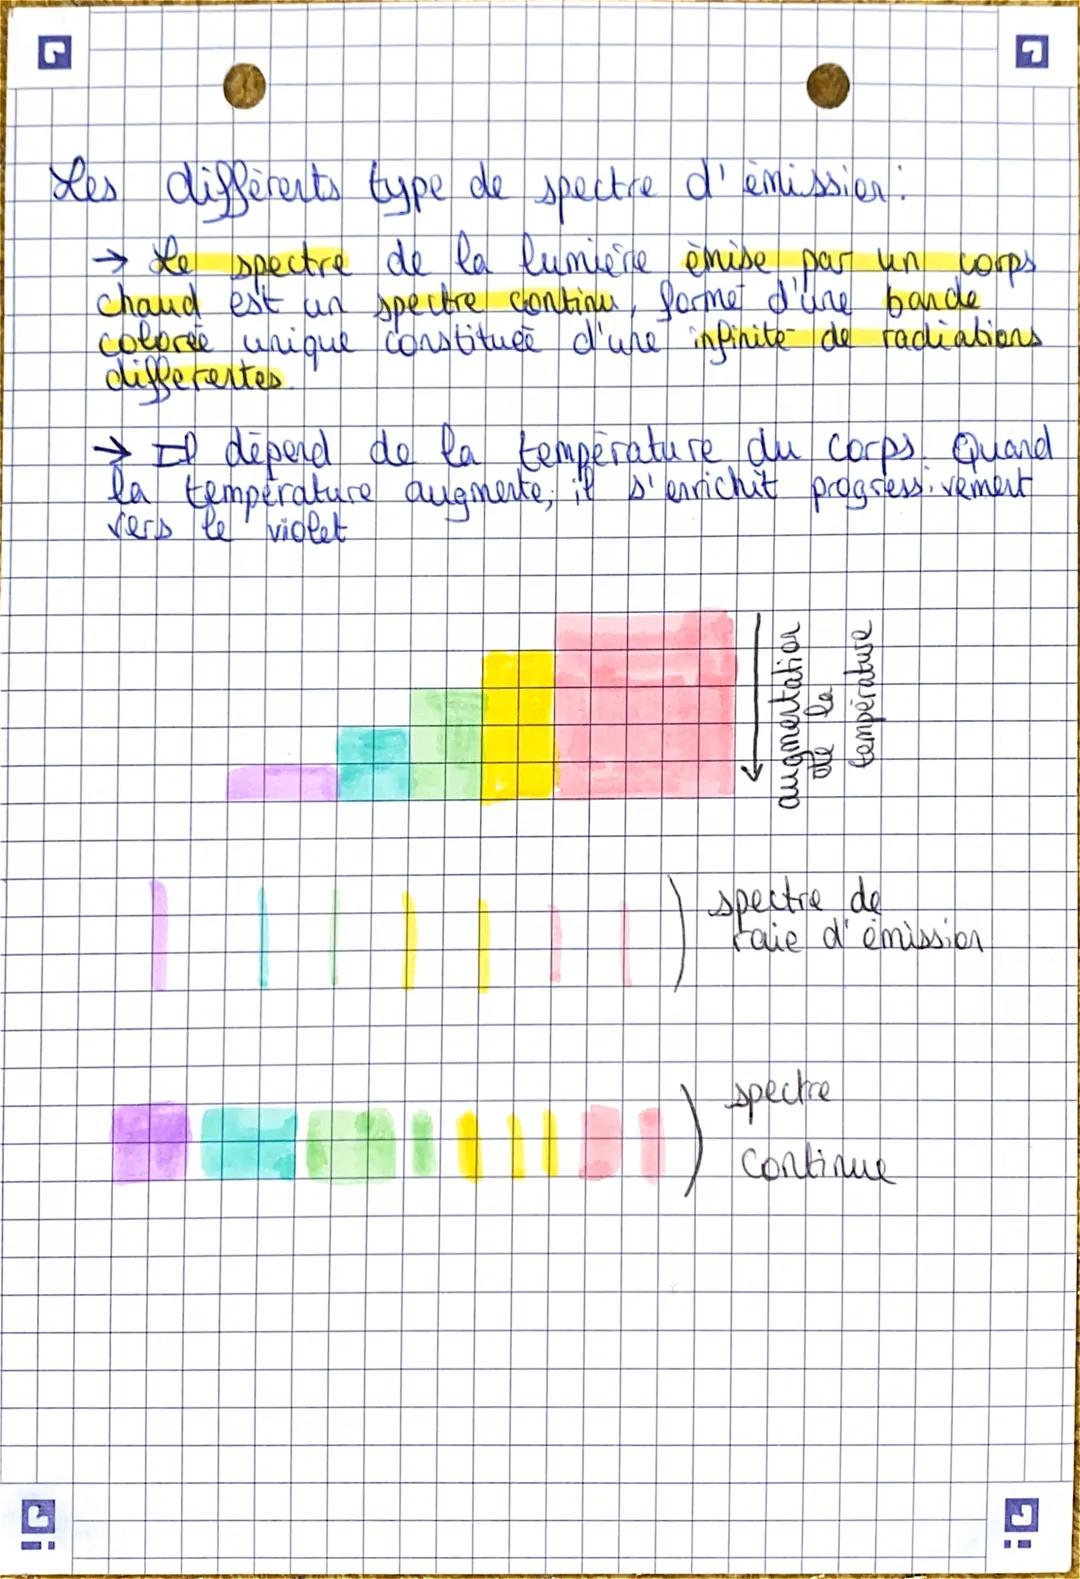 Les différents type de spectre d'émission :
→ Le spectre de la lumière émise par un corps
chaud est un spectre continu, formé d'une bande
colorée unique constituée d'une infinité de radiations
différentes.
→ Il dépend de la température du corps. Quand
la température augmente, il s'enrichit progressivement
vers le violet
augmentation
de la
température
spectre de
raie d'émission
spectre
continue